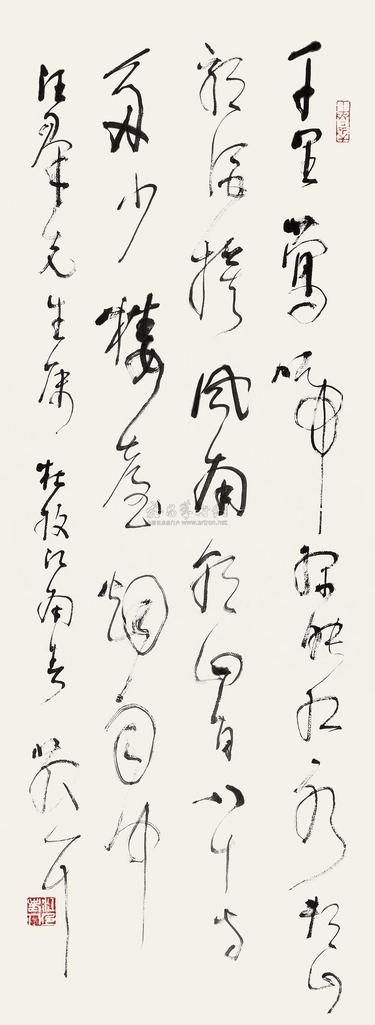 千里鶯啼綠映紅水村山
郭酒旗風南朝四百八十寺
多少樓臺煙雨中
汪羣先生属 杜牧江南春
www.artron.net